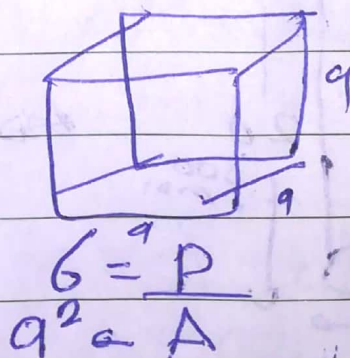 a
a
a
6 = P
a² = A